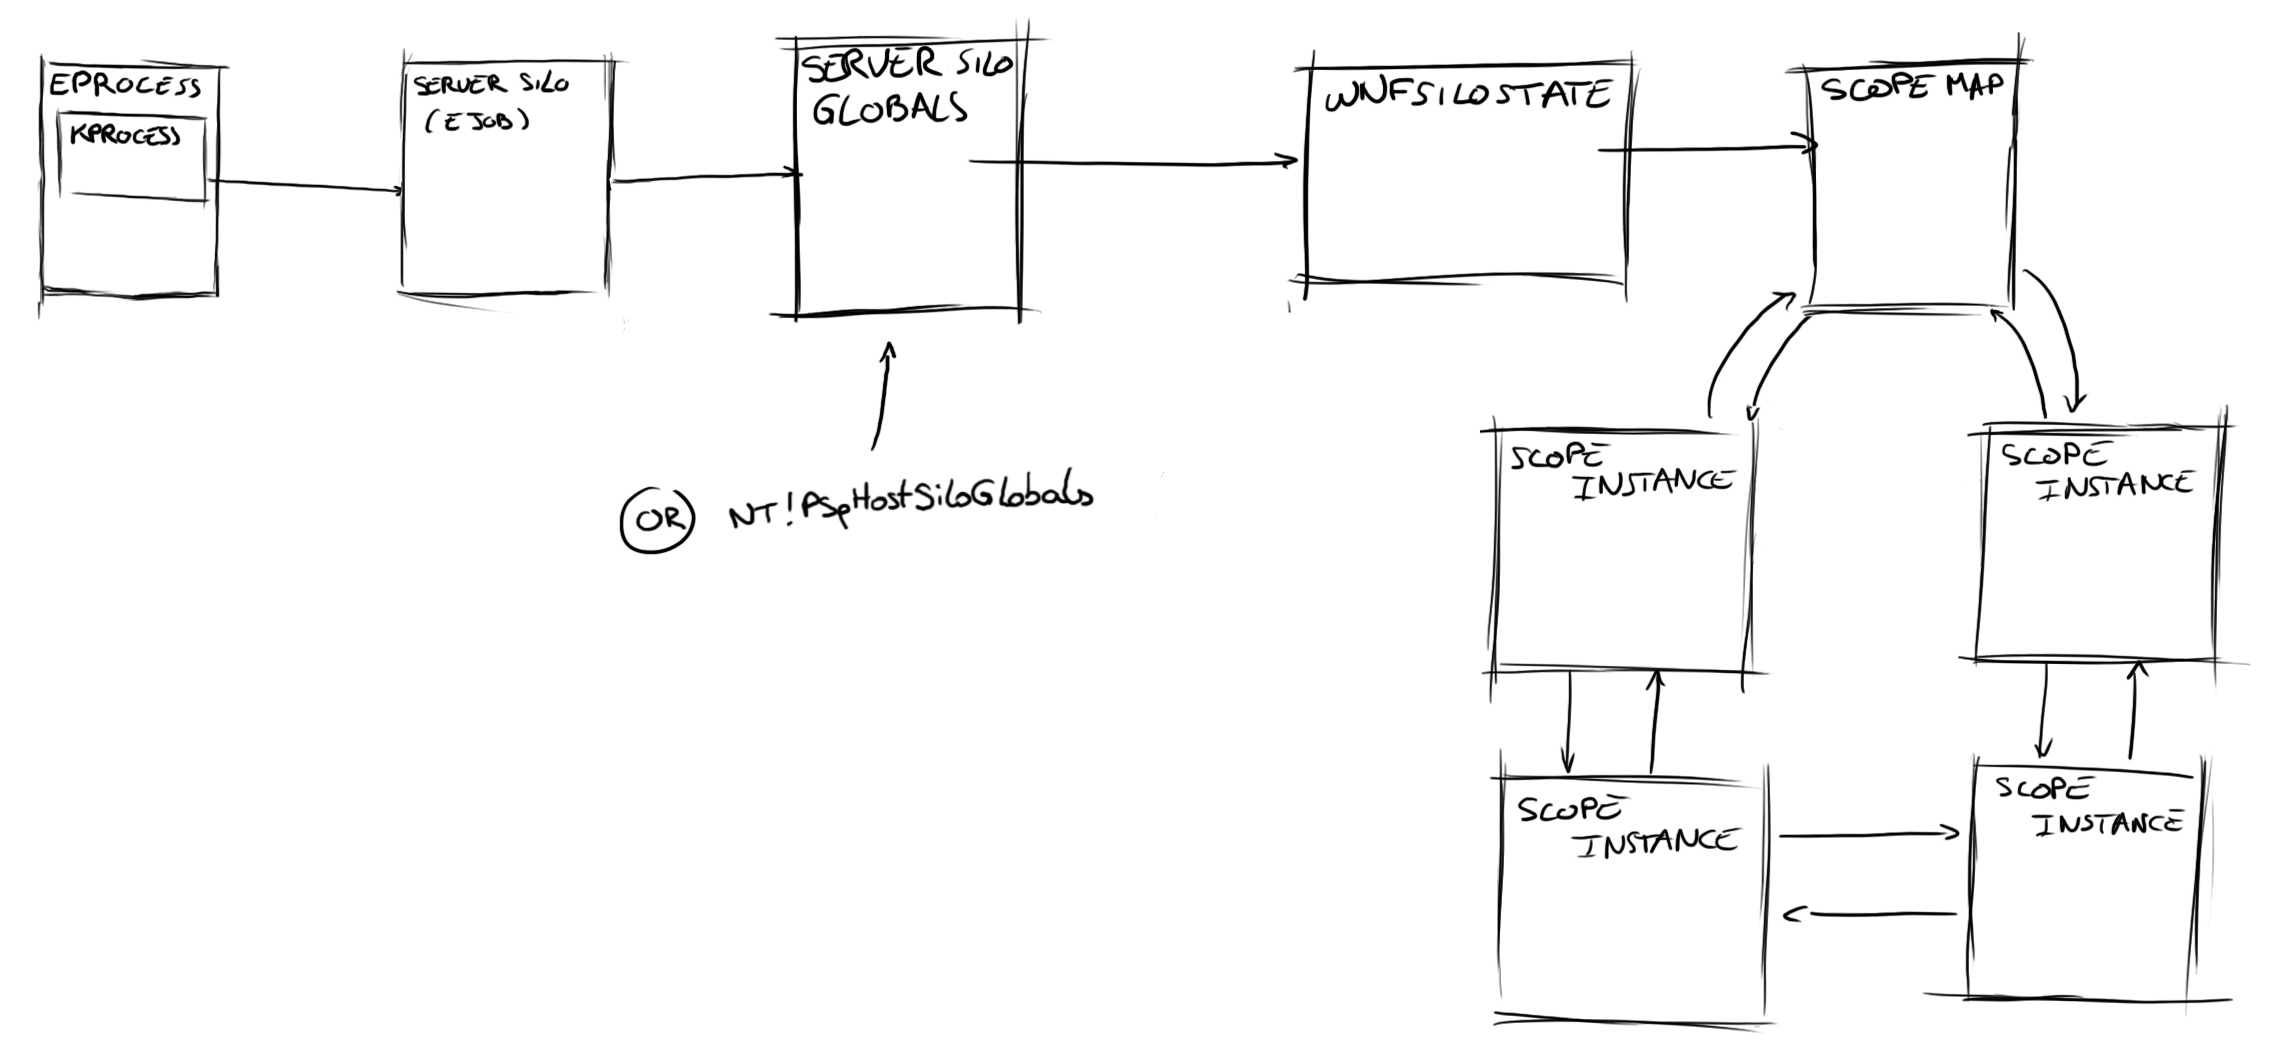 EPROCESS
KPROCESS
SERVER SILO
(EJOB)
SERVER SILO
GLOBALS
WNFSILOSTATE
SCOPE MAP
OR NT!PSpHostSiloGlobals
SCOPE
INSTANCE
SCOPE
INSTANCE
SCOPE
INSTANCE
SCOPE
INSTANCE